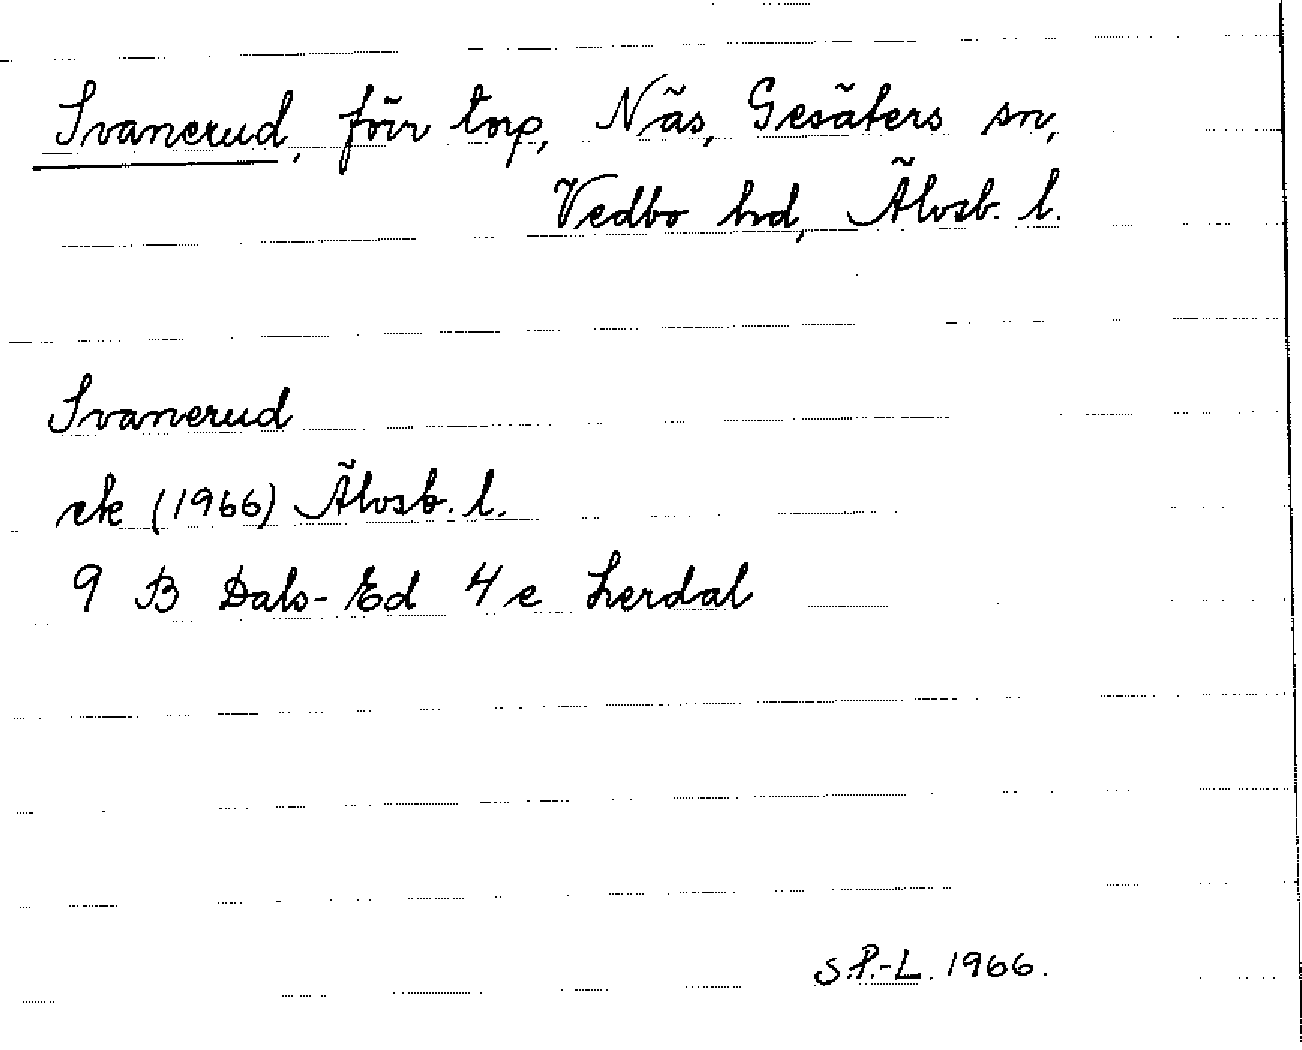 Svanerud, förr torp, Näs, Gesäters sn,
Vedbo hd, Älvsb. l.
Svanerud
ek (1966) Älvsb. l.
9 B Dals-Ed 4 e Lerdal
S.P.-L. 1966.